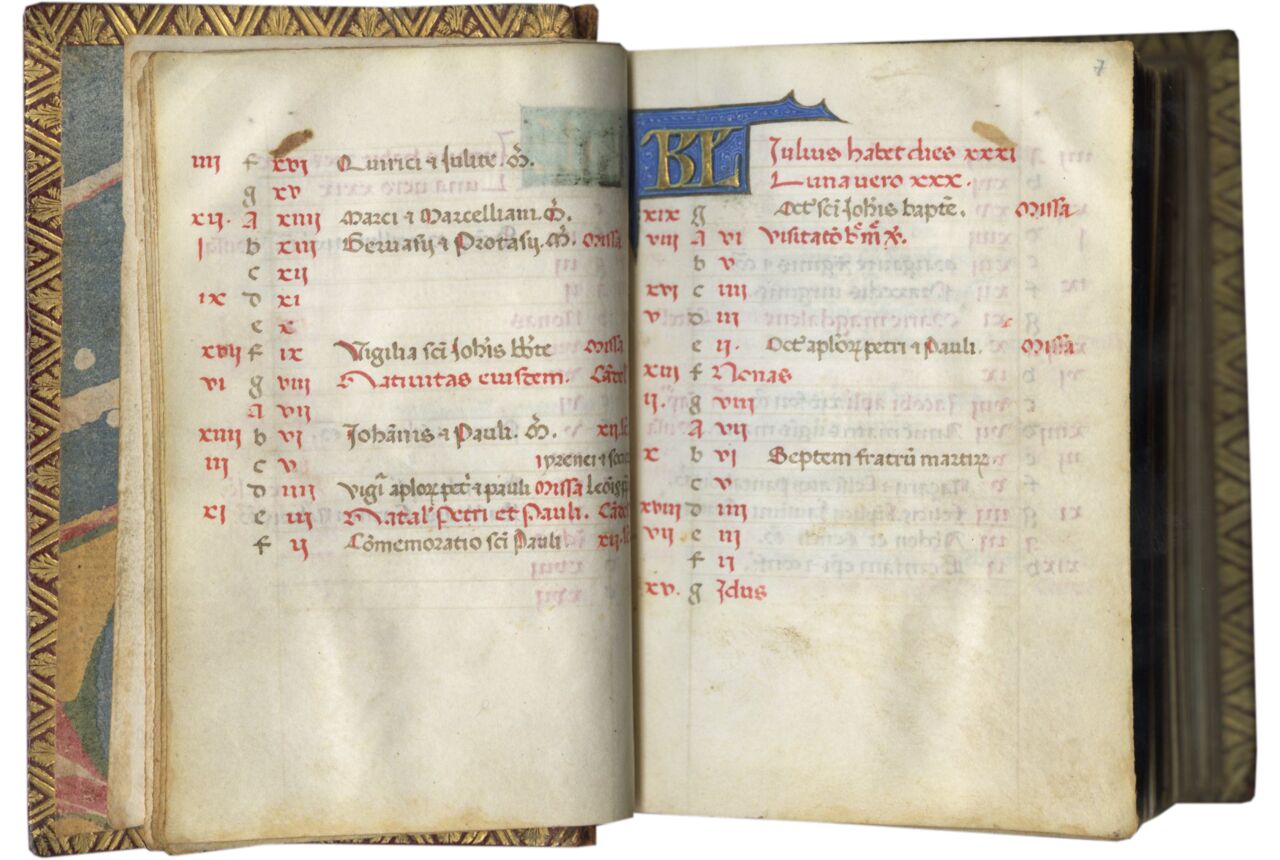 iiii f xvi Quirici ⁊ Iulite m̃.
g xv
xii. A xiiii Marci ⁊ Marcelliani. m̃.
i b xiii Geruasij ⁊ Protasij. m̃. Missa
c xii
ix d xi
e x
xvii f ix Vigilia sc̃i Joh̃is bb̃te Missa
vi g viii Natiuitas eiusdem.
A vii
xiiii b vi Johãnis ⁊ Pauli. m̃.
iii c v yrenei ⁊
d iiii vigĩ aploꝝ pet̃ ⁊ pauli Missa
xi e iii Natal' Petri et Pauli.
f ii Cõmemoratio sc̃i Pauli
7
KL Iulius habet dies xxxi
Luna uero xxx.
xix g Oct̃ sc̃i Joh̃is bapte. Missa
viii A vi Visitatõ b̃
b v
xvi c iiii
v d iii
e ii. Oct̃ aploꝝ petri ⁊ Pauli. Missa
xiii f Nonas
ii. g viii
A vii
x b vi Septem fratrũ martirꝝ
c v
xviii d iiii
vii e iii
f ii
xv. g Idus